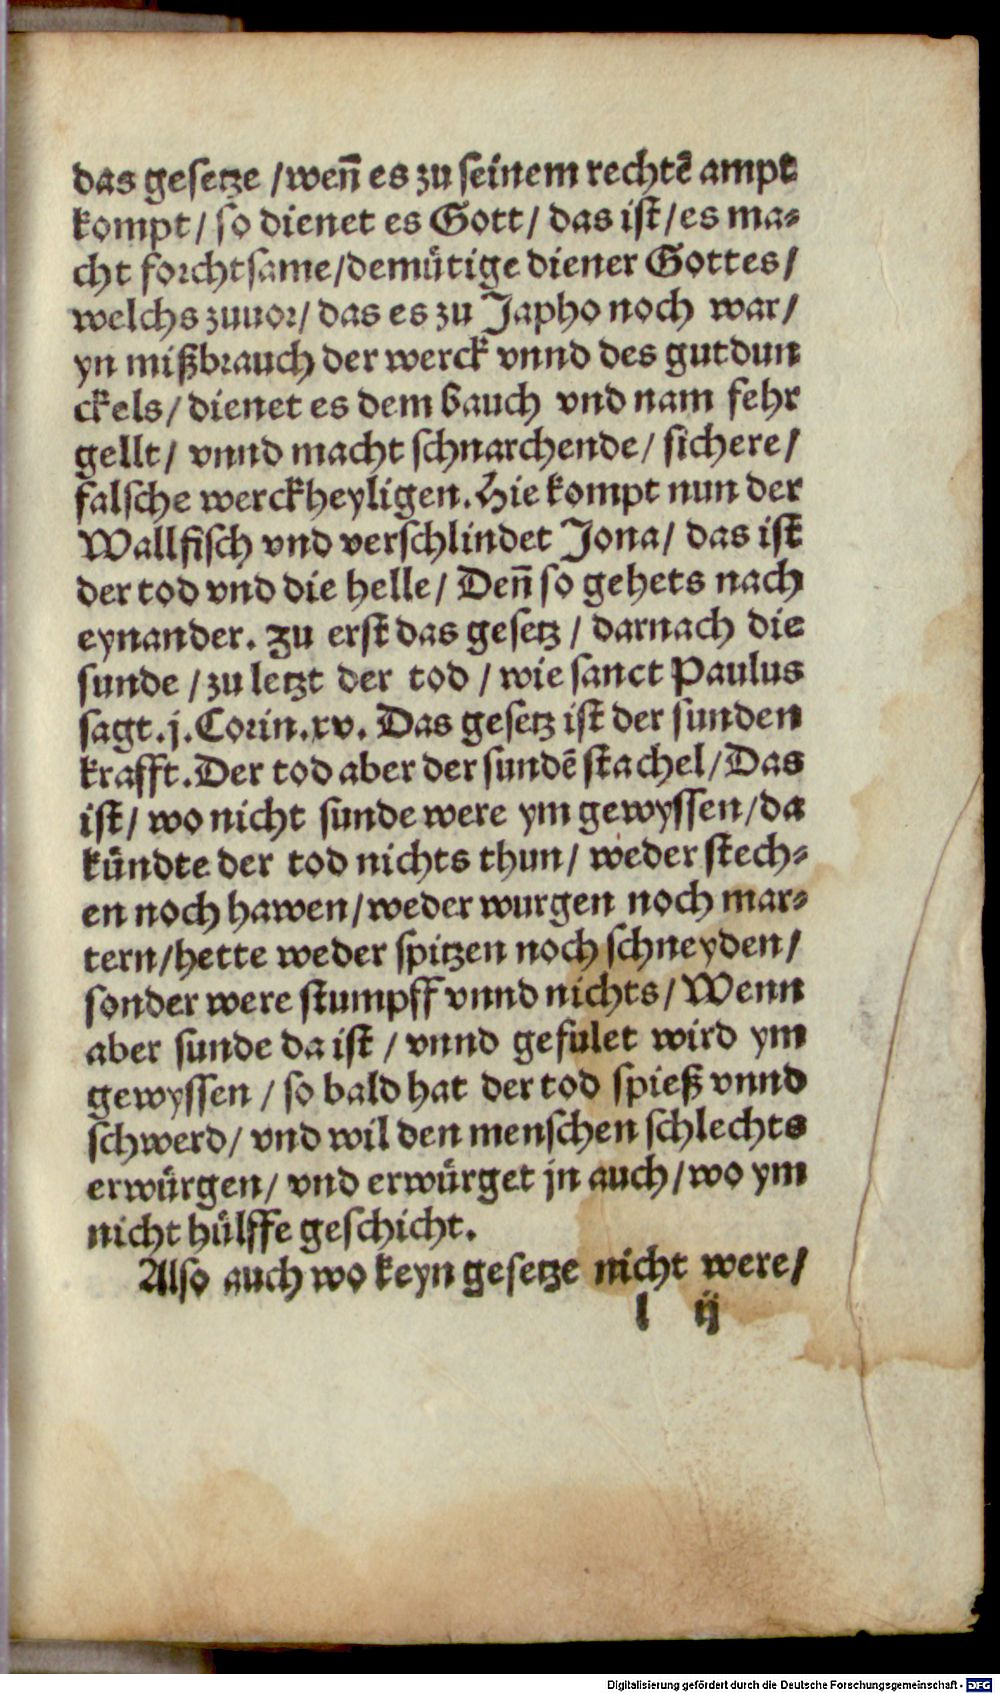 das gesetze / wen̄ es zu seinem rechtē ampt
kompt / so dienet es Gott / das ist / es ma⸗
cht forchtsame / demütige diener Gottes /
welchs zuuor / das es zu Japho noch war /
yn mißbrauch der werck vnnd des gutdun
ckels / dienet es dem bauch vnd nam fehr
gellt / vnnd macht schnarchende / sichere /
falsche werckheyligen. Hie kompt nun der
Wallfisch vnd verschlindet Jona / das ist
der tod vnd die helle / Den̄ so gehets nach
eynander. Zu erst das gesetz / darnach die
sunde / zu letzt der tod / wie sanct Paulus
sagt. j. Corin. xv. Das gesetz ist der sunden
krafft. Der tod aber der sundē stachel / Das
ist / wo nicht sunde were ym gewyssen / da
kündte der tod nichts thun / weder stech⸗
en noch hawen / weder wurgen noch mar⸗
tern / hette weder spitzen noch schneyden /
sonder were stumpff vnnd nichts / Wenn
aber sunde da ist / vnnd gefulet wird ym
gewyssen / so bald hat der tod spieß vnnd
schwerd / vnd wil den menschen schlechts
erwürgen / vnd erwürget jn auch / wo ym
nicht hülffe geschicht.
Also auch wo keyn gesetze nicht were /
l ij
Digitalisierung gefördert durch die Deutsche Forschungsgemeinschaft - DFG